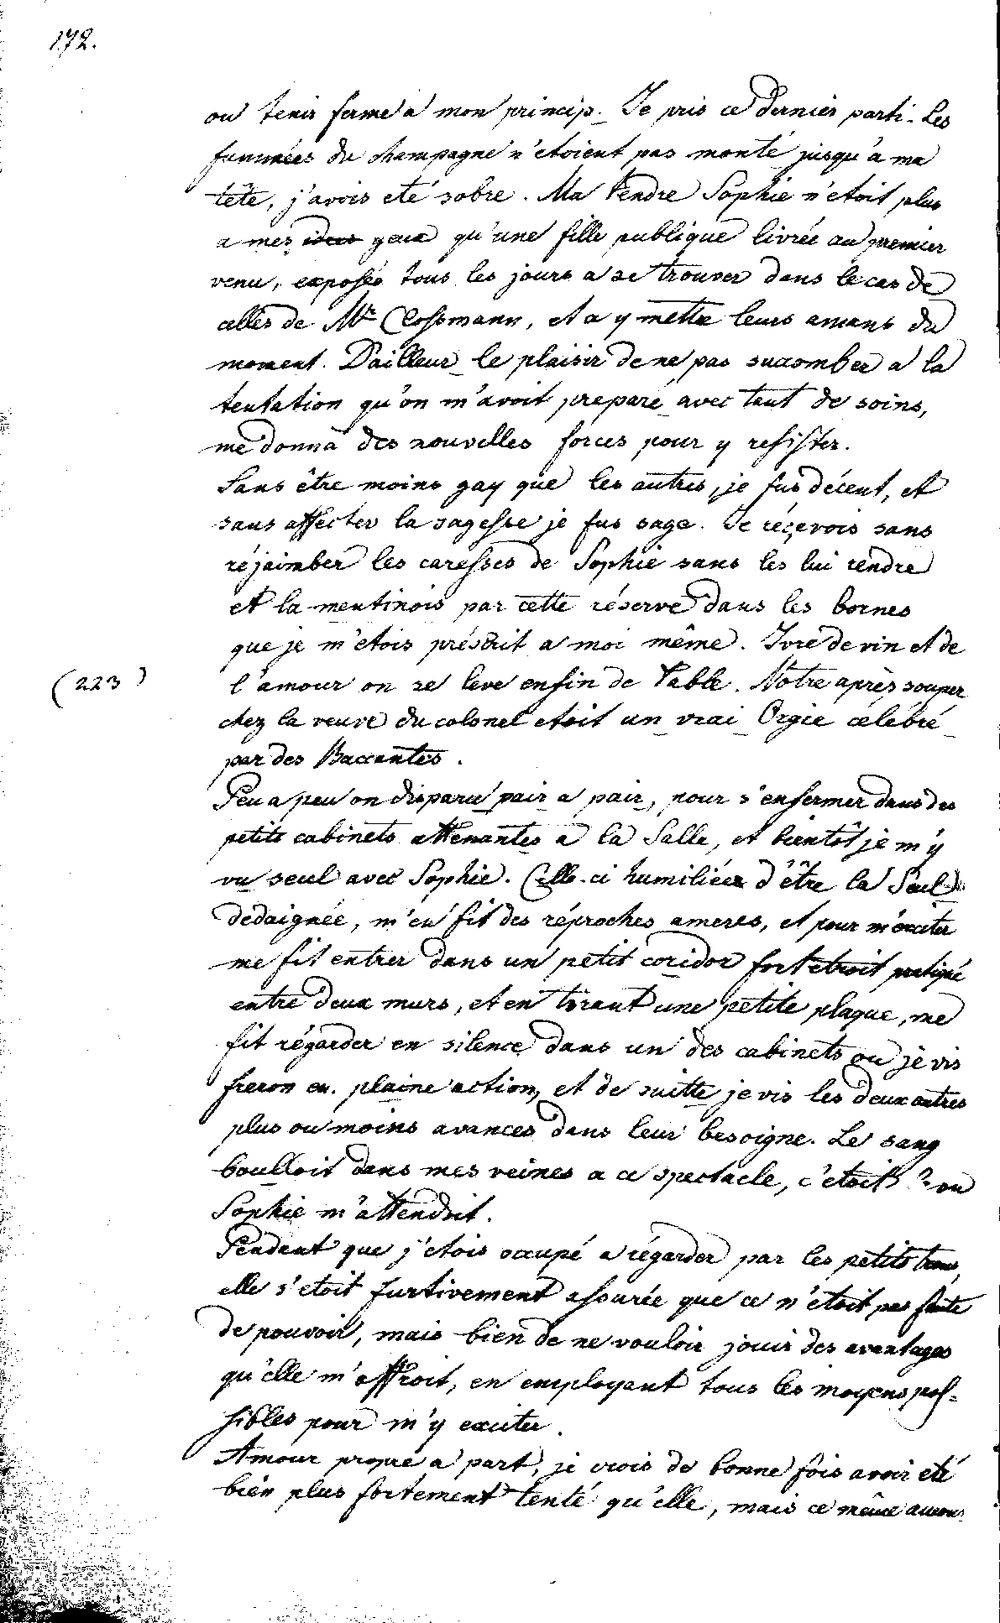 172.
ou tenir ferme a mon princip. Je pris ce dernier parti. Les
fummées du champagne n'etoient pas monté jusqu'a ma
tête, j'avois eté sobre. Ma tendre Sophie n'etoit plus
a mes yeux qu'une fille publique livrée au premier
venu, exposée tous les jours a se trouver dans le cas de
celles de Mr Clossmann, et a y mettre leurs amans du
moment. D'ailleur le plaisir de ne pas sucomber a la
tentation qu'on m'avoit preparé avec tant de soins,
me donna des nouvelles forces pour y resister.
Sans être moins gay que les autres, je fus décent, et
sans affecter la sagesse je fus sage. Je réçevois sans
réjaimber les caresses de Sophie sans les lui rendre
et la mentinois par cette réserve dans les bornes
que je m'etois préscrit a moi même. Ivre de vin et de
(223)
l'amour on se leve enfin de Table. Notre après souper
chez la veuve du colonel etoit un vrai Orgie célébré
par des Baccantes.
Peu a peu on disparu pair a pair, pour s'enfermer dans des
petits cabinets attenantes a la Salle, et bientôt je m'y
vu seul avec Sophie. Celle-ci humiliée d'être la Seule
dedaignée, m'en fit des réproches ameres, et pour m'exciter
me fit entrer dans un petit coridor fort etroit pratiqué
entre deux murs, et en tirant une petite plaque, me
fit régarder en silence dans un des cabinets ou je vis
freron en plaine action, et de suitte je vis les deux autres
plus ou moins avances dans leur besoigne. Le sang
boulloit dans mes veines a ce spectacle, c'etoit ou
Sophie m'attendoit.
Pendent que j'etois occupé a régarder par les petits trous,
elle s'etoit furtivement assurée que ce n'etoit pas faute
de pouvoir, mais bien de ne vouloir jouir des avantages
qu'elle m'offroit, en employant tous les moyens pos-
sibles pour m'y exciter.
Amour propre a part, je crois de bonne fois avoir eté
bien plus fortement tenté qu'elle, mais ce même amour